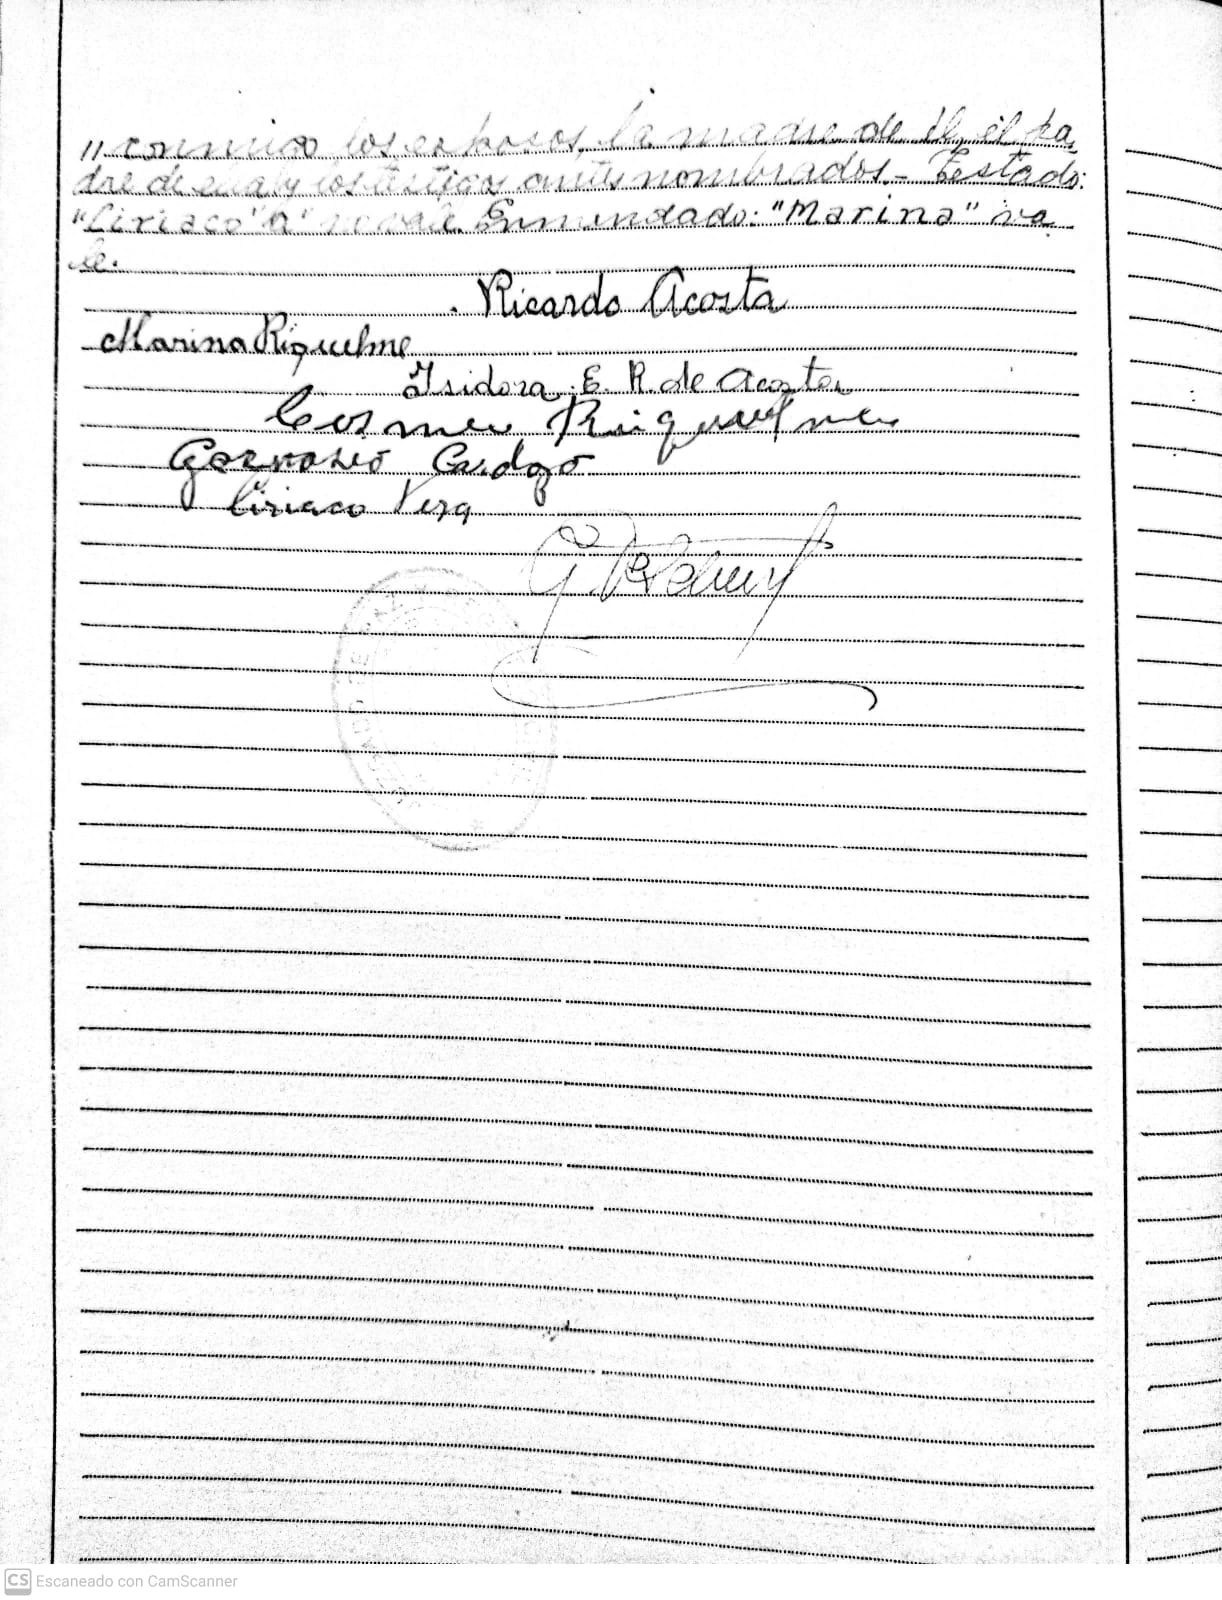 "conmigo los esposos, la madre de él, el pa-
dre de ella y los testigos antes nombrados.- Testado:
"Ciriaco" "a" no vale. Enmendado: "Marina" va
le.
Ricardo Acosta
Marina Riquelme
Isidora E. R. de Acosta
Cosme Riquelme
Gervasio Cardozo
Ciriaco Vera
CS Escaneado con CamScanner